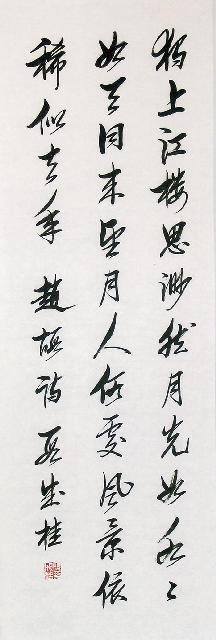 独上江楼思渺然月光如水々
如天同来望月人何处风景依
稀似去年 趙嘏诗 段成桂